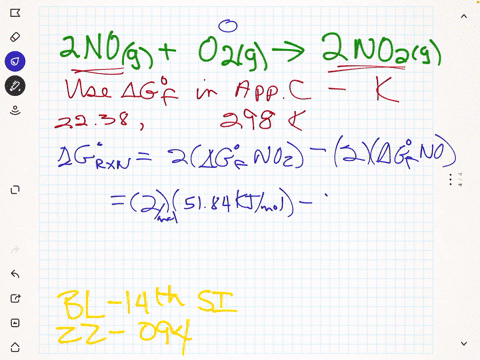 2NO(g) + O2(g) → 2NO2(g)
Use ΔG°f in App. C – K
22.38, 298 K
ΔG°RXN = 2(ΔG°f NO2) – (2)(ΔG°f NO)
= (2 mol)(51.84 KJ/mol) –
BL – 14th SI
22 – 094